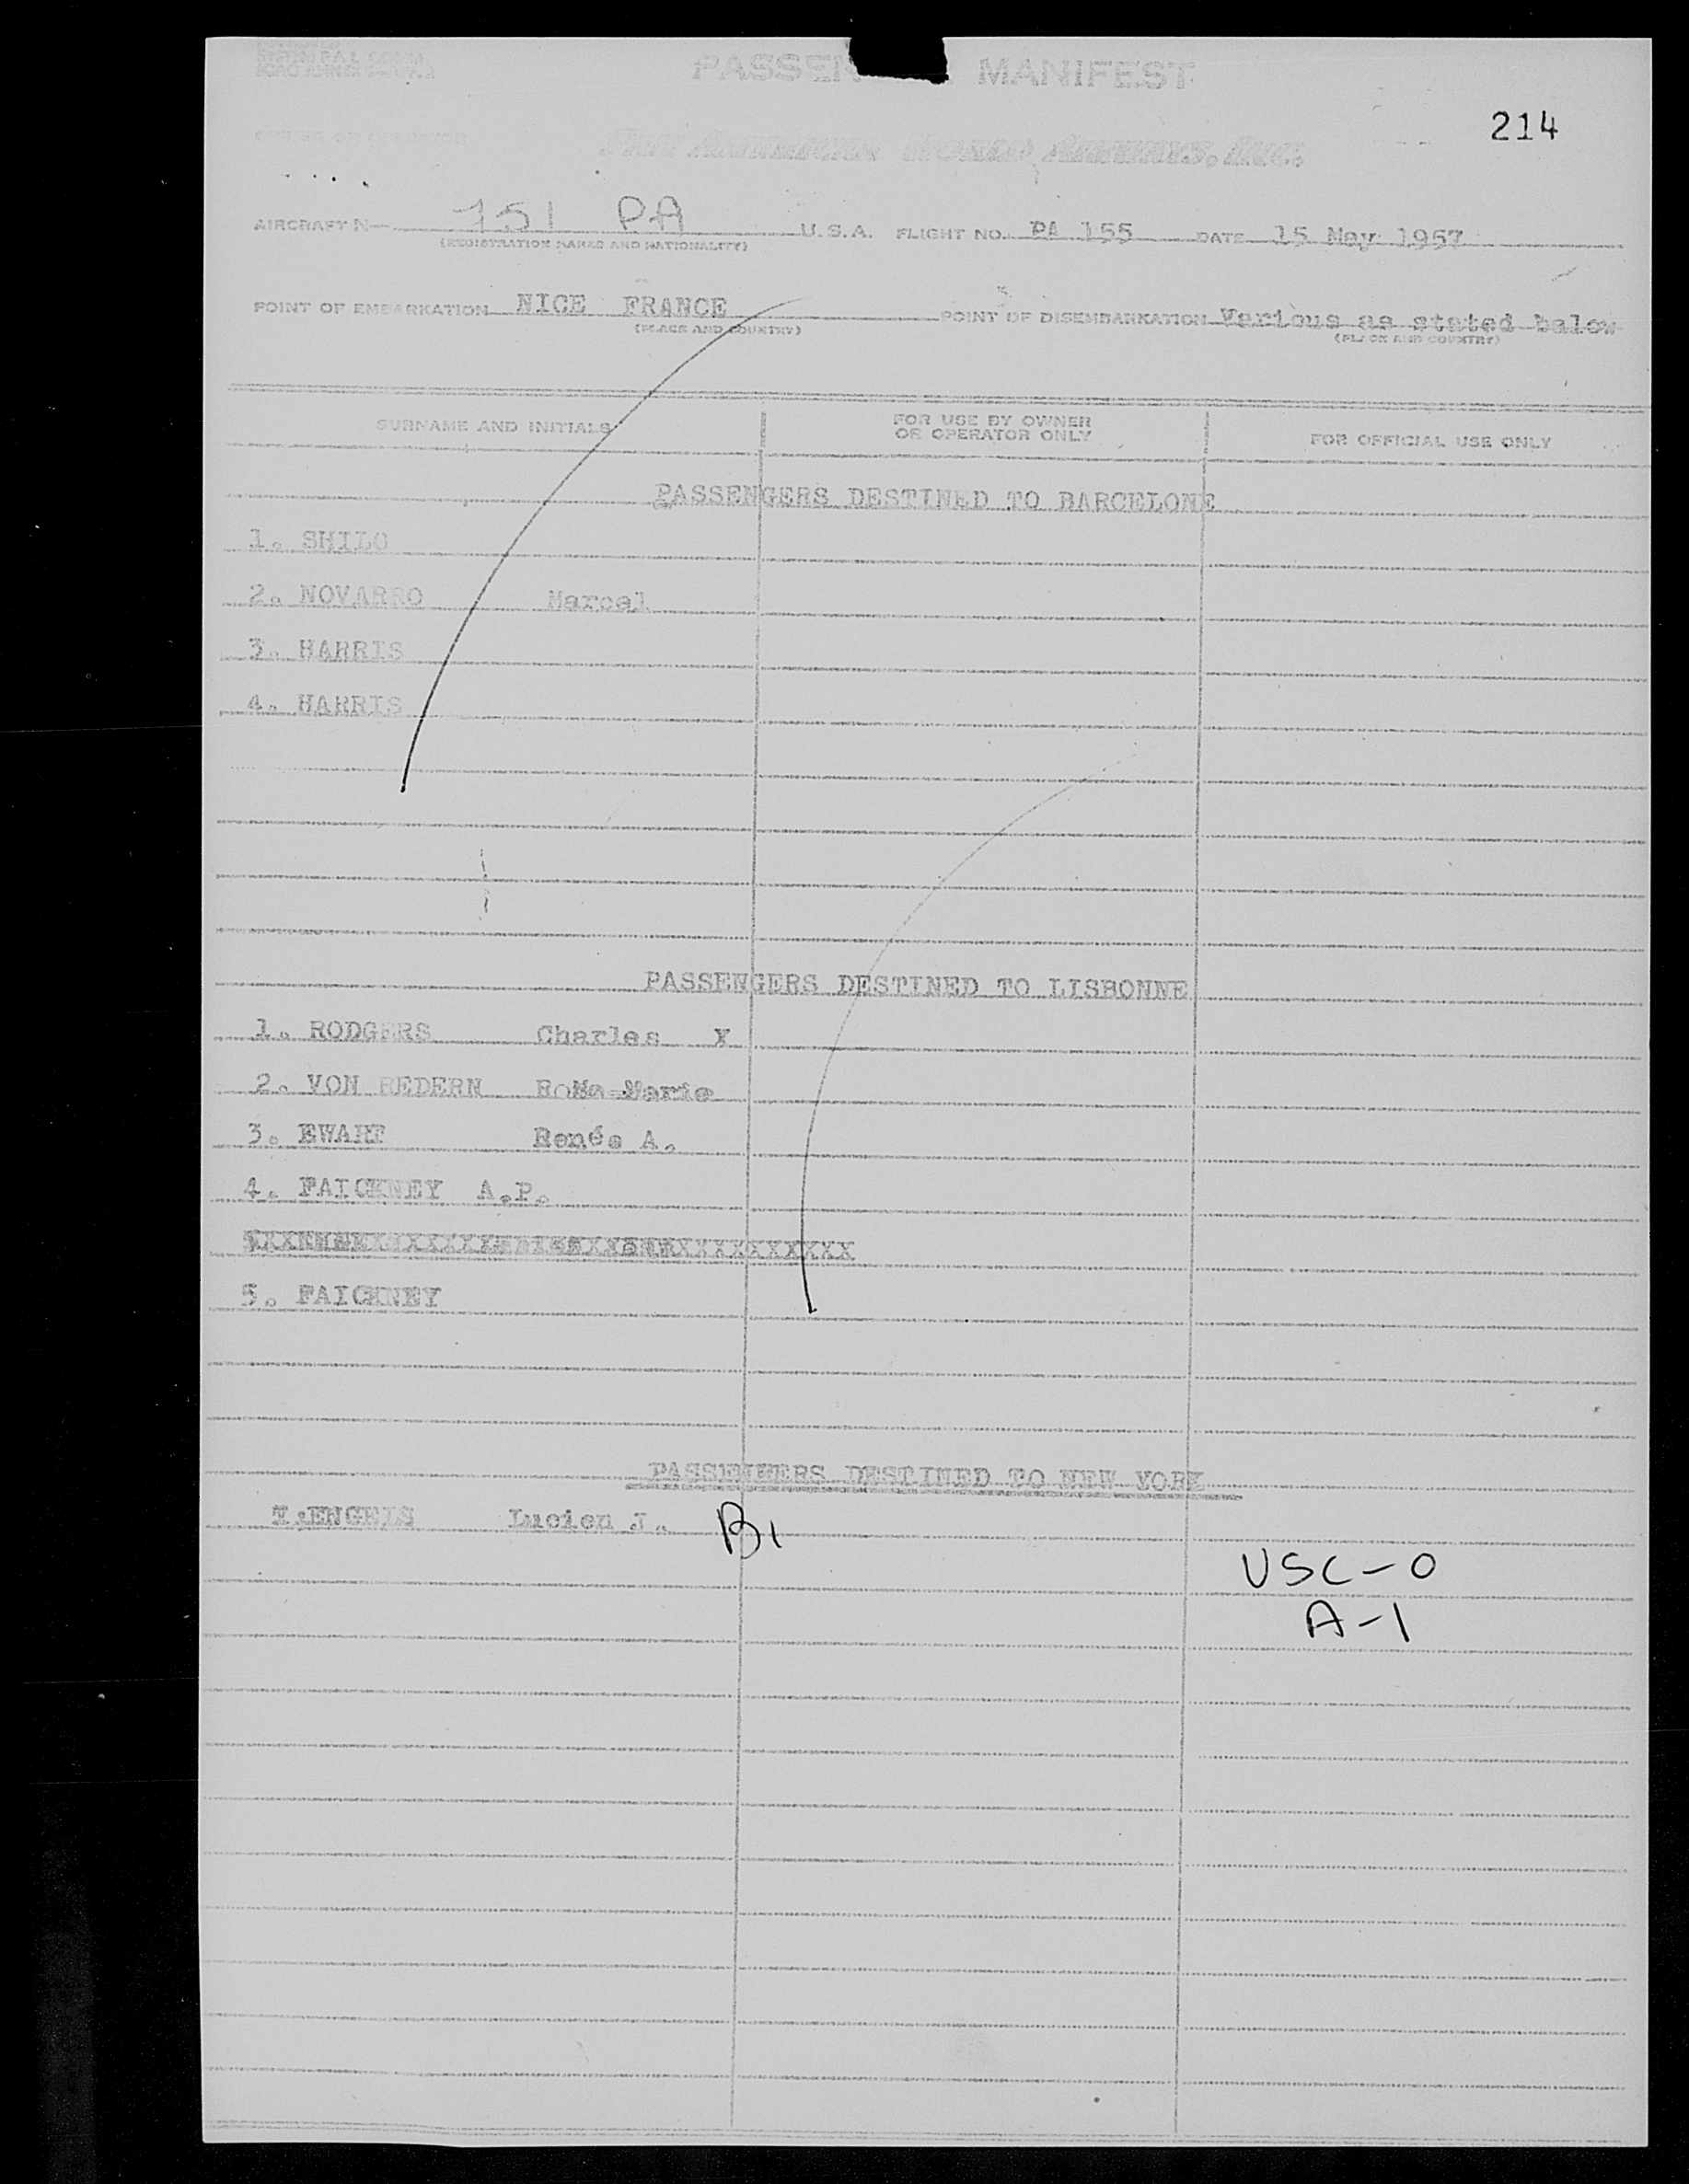 PASSEN MANIFEST
214
OWNER OR OPERATOR
PAN AMERICAN WORLD AIRWAYS, INC.
AIRCRAFT N— 751 PA U.S.A. FLIGHT NO. PA 155 DATE 15 May 1957
(REGISTRATION MARKS AND NATIONALITY)
POINT OF EMBARKATION NICE FRANCE POINT OF DISEMBARKATION Various as stated below
(PLACE AND COUNTRY) (PLACE AND COUNTRY)
SURNAME AND INITIALS FOR USE BY OWNER OR OPERATOR ONLY FOR OFFICIAL USE ONLY
PASSENGERS DESTINED TO BARCELONE
1. SHILO
2. NOVARRO Marcel
3. HARRIS
4. HARRIS
PASSENGERS DESTINED TO LISBONNE
1. RODGERS Charles X
2. VON REDERN
3. Renée A.
4. FAICKNEY A.P.
5. FAICKNEY
PASSENGERS DESTINED TO NEW YORK
ENGELS Lucien J. B1
USC-0
A-1